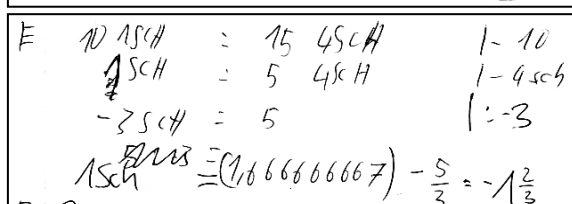 E 10 1SCH = 15 4SCH |- 10
1SCH = 5 4SCH |- 4sch
-3SCH = 5 |:-3
1Sch = (1,666666667) - 5/3 = -1 2/3